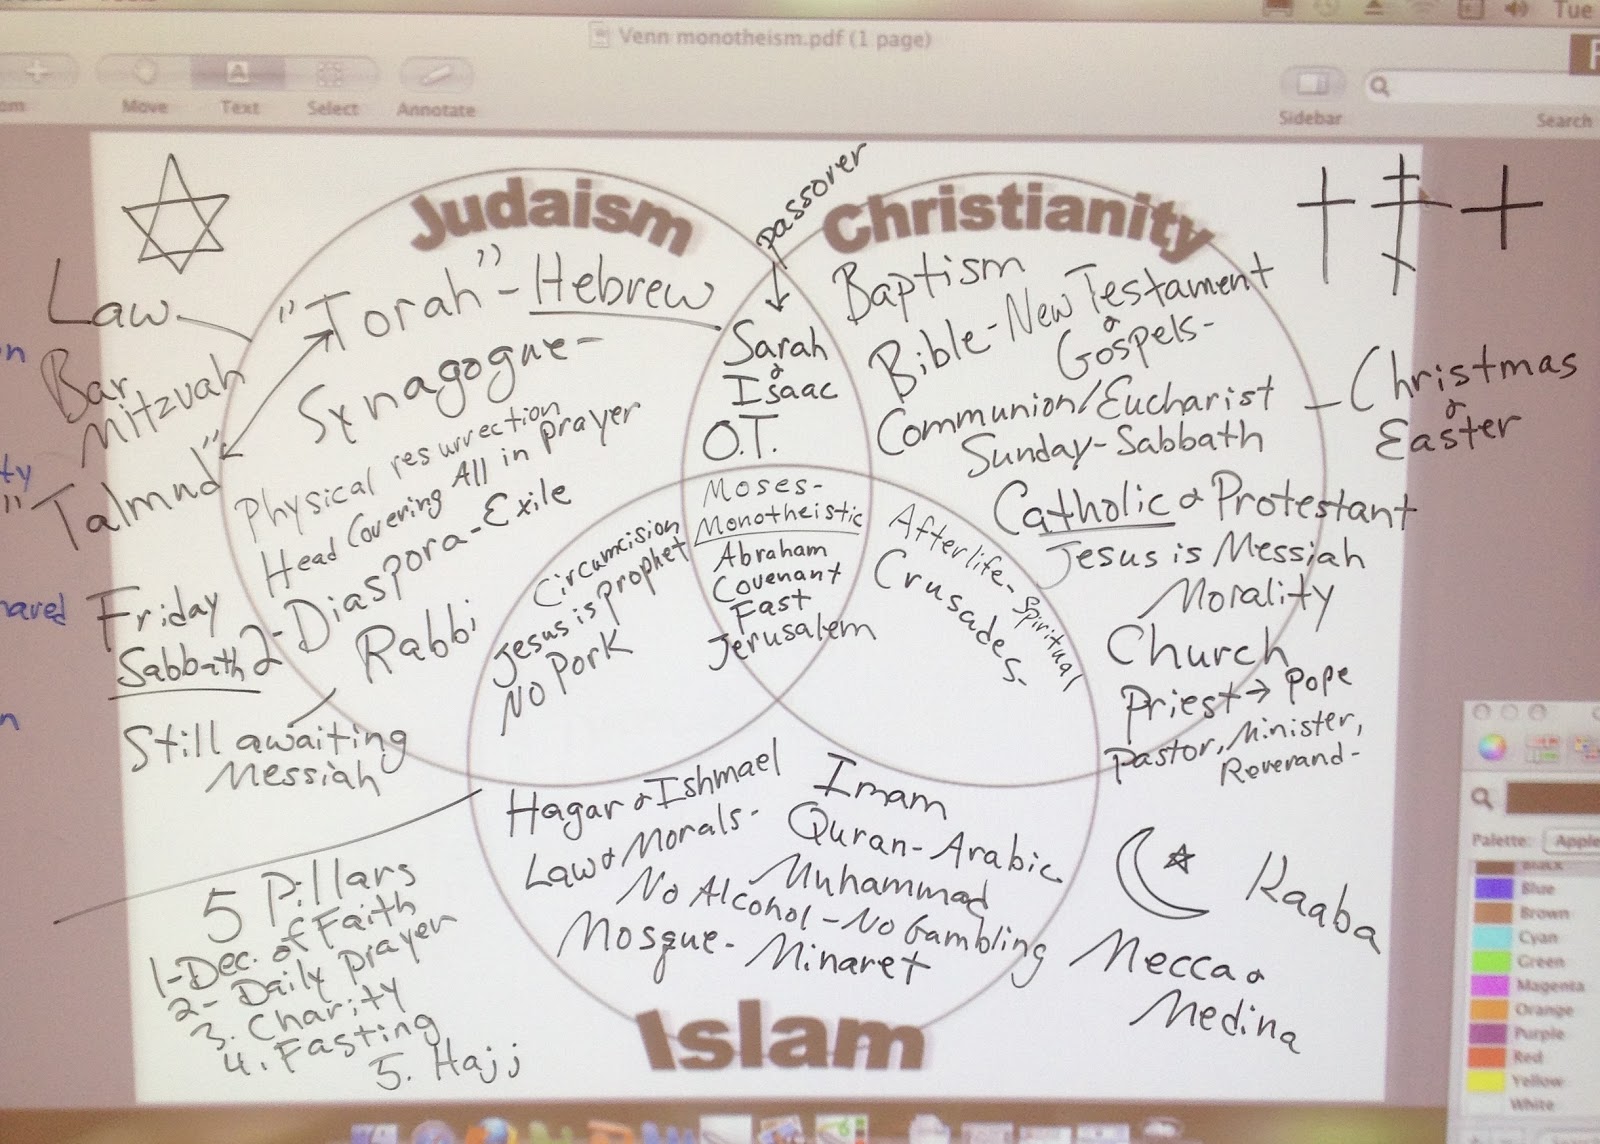 Tue
Venn monotheism.pdf (1 page)
Move
Text
Select
Annotate
Sidebar
Search
Judaism
passover
Christianity
Law
"Torah" - Hebrew
Bar
Mitzvah
Synagogue -
"Talmud"
Physical resurrection
Head Covering All in prayer
2 - Diaspora - Exile
Rabbi
Friday
Sabbath
Still awaiting
Messiah
Sarah
&
Isaac
O.T.
Baptism
Bible - New Testament
&
Gospels -
Communion/Eucharist
Sunday - Sabbath
Christmas
&
Easter
Catholic & Protestant
Jesus is Messiah
Morality
Church
Priest → Pope
Pastor, Minister,
Reverand -
Circumcision
Jesus is prophet
No Pork
Moses -
Monotheistic
Abraham
Covenant
Fast
Jerusalem
Afterlife - Spiritual
Crusades -
Hagar & Ishmael
Law & Morals -
Imam
Quran - Arabic
Muhammad
No Alcohol - No Gambling
Mosque - Minaret
Islam
5 Pillars
1 - Dec. of Faith
2 - Daily prayer
3. Charity
4. Fasting
5. Hajj
Kaaba
Mecca &
Medina
Palette:
Apple
Black
Blue
Brown
Cyan
Green
Magenta
Orange
Purple
Red
Yellow
White